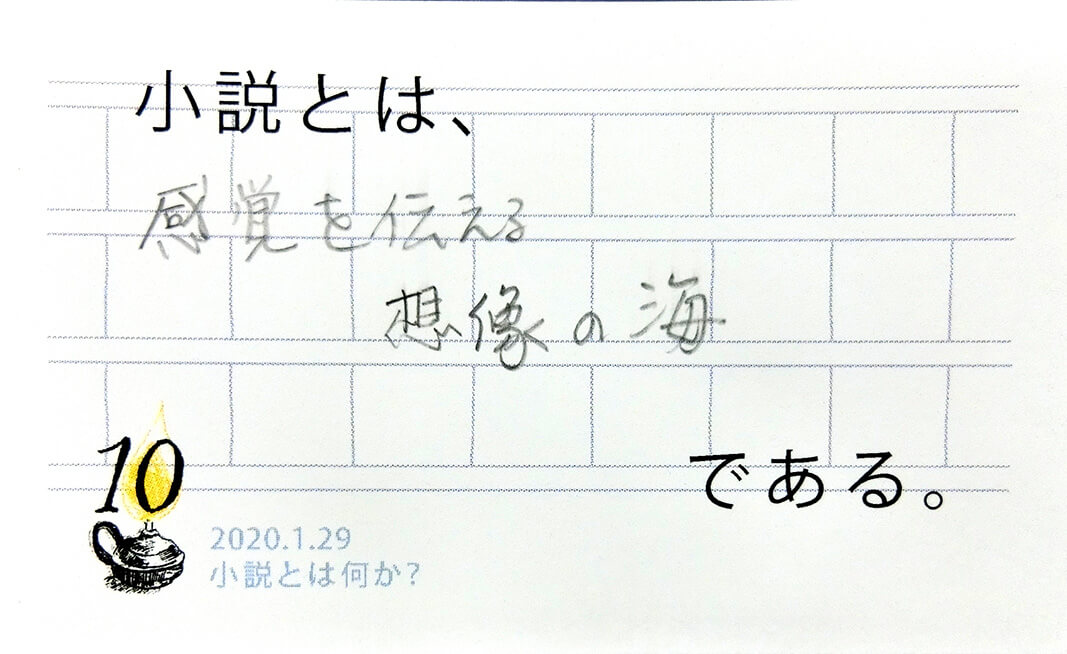 小説とは、
感覚を伝える
想像の海
である。
10
2020.1.29
小説とは何か?